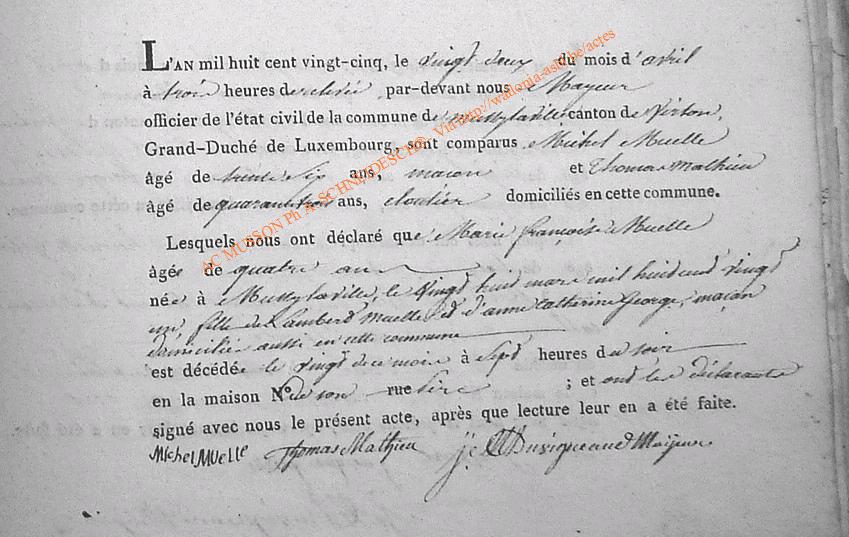 L'AN mil huit cent vingt-cinq, le vingt deux du mois d'avril
à trois heures de relevée, par-devant nous Mayeur
officier de l'état civil de la commune de Mussylaville canton de Virton,
Grand-Duché de Luxembourg, sont comparus Michel Muelle
âgé de trente six ans, macon et Thomas Mathieu
âgé de quarante trois ans, cloutier domiciliés en cette commune.
Lesquels nous ont déclaré que Marie françoise Muelle
âgée de quatre ans
née à Mussylaville, le vingt huit mars mil huit cent vingt
un fille de Lambert Muelle et d'anne Catherine George, maçon
domicilié aussi en cette commune
est décédée le vingt de ce mois à Sept heures du soir
en la maison N° de son rue père ; et ont les déclarants
signé avec nous le présent acte, après que lecture leur en a été faite.
Michel MUelle Thomas Mathieu j. Mayeur
AC MUSSON Ph A. SCHNEDESCH@ - Via http://wallonia-asbl.be/actes